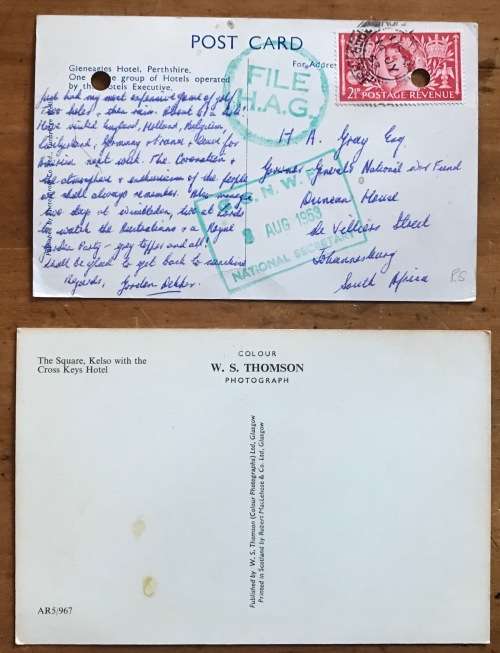 POST CARD
Gleneagles Hotel, Perthshire.
One of the group of Hotels operated
by the Hotels Executive.
For Address
FILE
H.A.G.
2½D POSTAGE REVENUE 2½D
Just had my most expensive game of golf
Two holes & then rain. About £1 a hole.
Have visited England, Holland, Belgium
Switzerland, Germany & France & leave for
next week. The Coronation &
the atmosphere & enthusiasm of the people
we shall always remember. Also managed
two days at Wimbledon, two at Lords
to watch the Australians & a Royal
Garden Party - grey topper and all!
Shall be glad to get back to sunshine
Regards, Gordon
H A. Gray Esq
Governor-General's National War Fund
Duncan House
De Villiers Street
Johannesburg
South Africa
P.S
N.W.
3 AUG 1953
NATIONAL SECRETARY
The Square, Kelso with the
Cross Keys Hotel
COLOUR
W. S. THOMSON
PHOTOGRAPH
Published by W. S. Thomson (Colour Photographs) Ltd, Glasgow
Printed in Scotland by Robert MacLehose & Co. Ltd, Glasgow
AR5/967